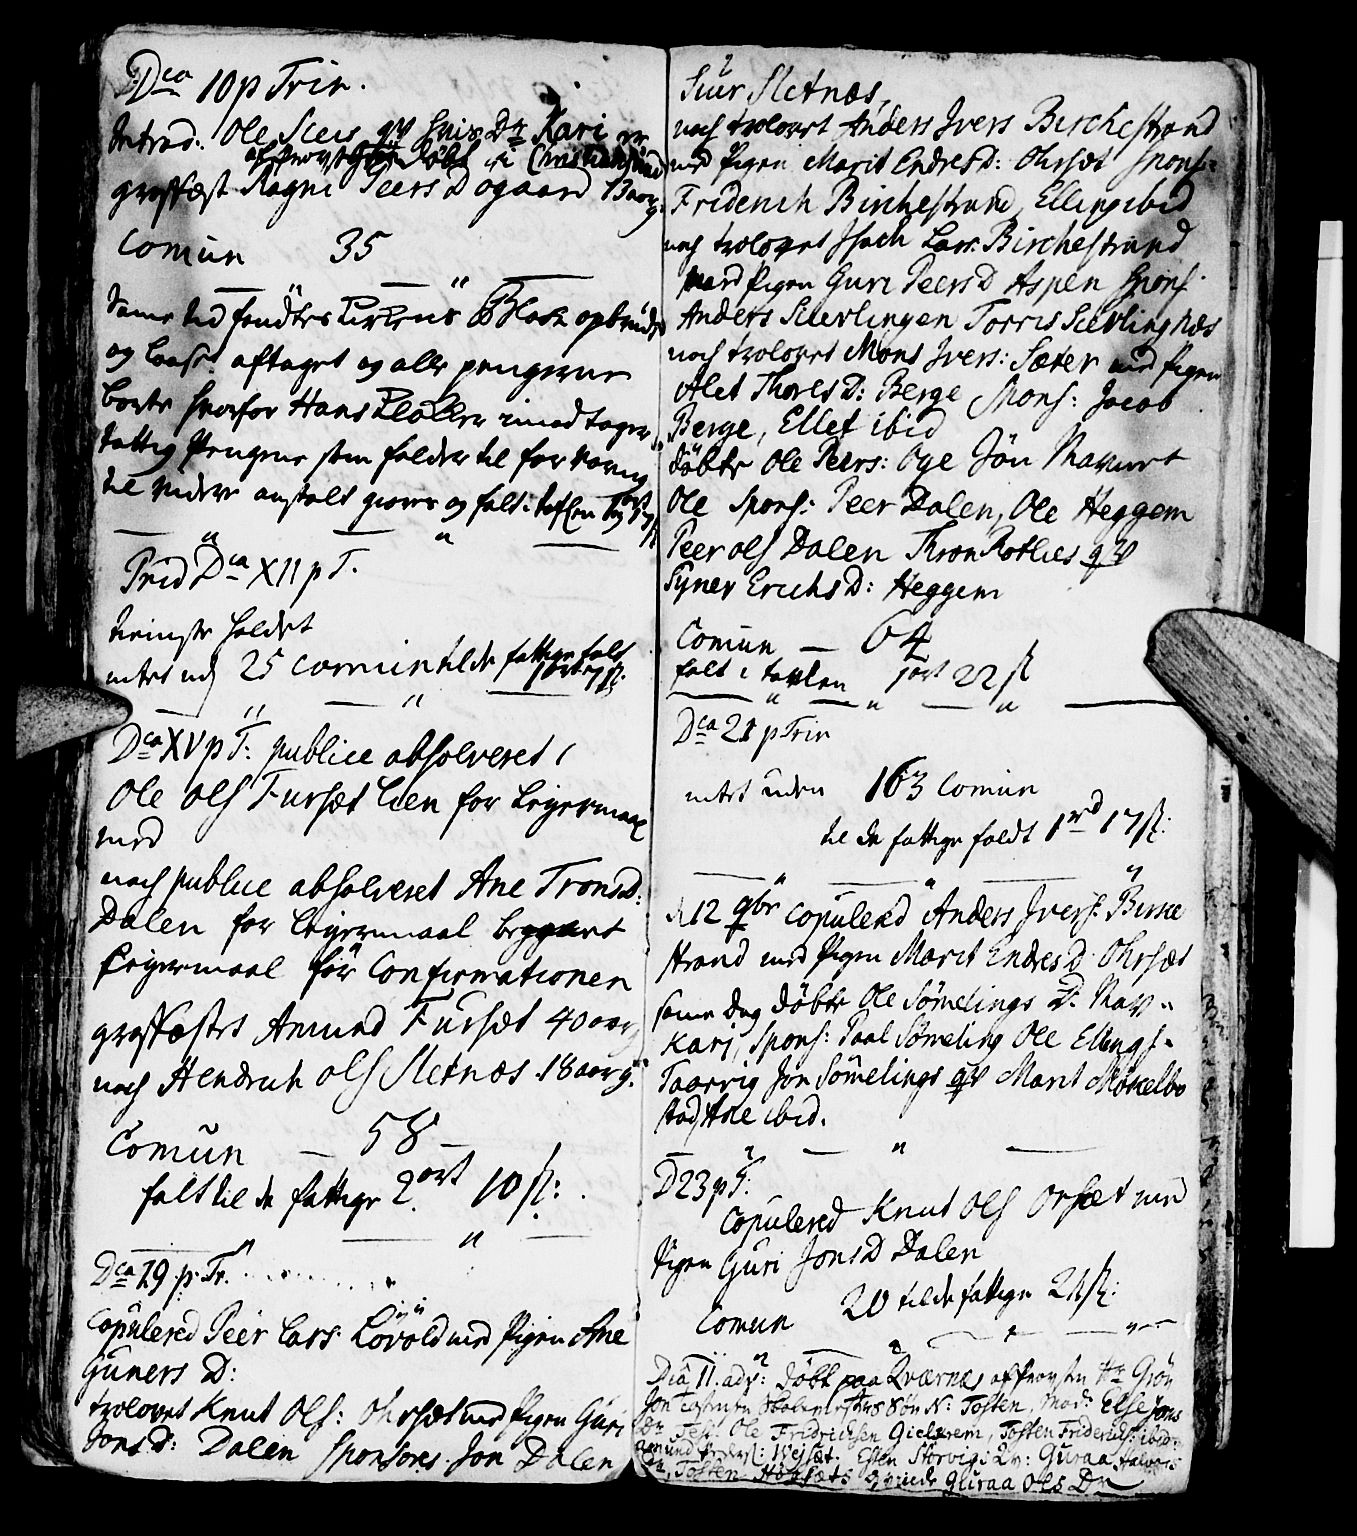 Dca 10 p Trin.
Introd: Ole Sleis qv hvis Dr Kari er
af Provst Grøn döbt i Christiansund
grafæst Ragni Peers D ogaard 13 aar g:
Comun 35
Same tid fandtes Kirkens Block opbrudt
og laaset aftaget og alle pengerne
borte hvorfor Hans Kloker imodtager
fattig Pengene som falder til forvaring
til videre anstalt giøres og falt i taflen 1 ort 7 ß
Prid Dca XII p T.
tieniste holdet
intet uden 25 comun til de fattige falt
1 ort 7 ß.
Dca XV p T: publice absolveret
Ole Ols Fursæt lien for Leyermaal
med
noch publice absolveret Ane TronsD:
Dalen for leyermaal begganet
Leyermaal för Confirmationen
grafæstes Amund Fursæt 40 aar
noch Hendrich Ols Sletnæs 18 aar g:
Comun 58
falt til de fattige 2 ort 10 ß:
Dca 19 p Tr.
Copulered Peer Lars Lövold med Pigen Ane
Guners D:
trolovet Knut Ols: Ohrsæt med Pigen Guri
JonsD: Dalen Sponsores Jon Dalen
Siur Sletnæs,
noch trolovet Anders Ivers Birchestrand
med Pigen Marit EndresD: Ohrsæt Spons:
Friderich Birchestrand, Elling ibid
noch trolovet Isach Lars: Birchestrand
med Pigen Guri PeersD Aspen Spons:
Anders Sierlingen Torris Sierlingnæs
noch trolovet Mons Ivers: Sæter med Pigen
Alet ThoresD: Berge Spons: Jacob
Berge, Ellef ibid
döbte Ole Peers: Oye Jön Navnet
Ole Spons: Peer Dalen, Ole Heggem
Peer Ols Dalen Thron Rotlies qv
Syner ErichsD: Heggem
Comun — 64
falt i tavlen 1 ort 22 ß
Dca 21 p Trin
intet uden 163 Comun
til de fattige faldt 1 rd 17 ß:
d 12 9br copulered Anders Ivers: Birke
strand med Pigen Marit EndresD: Ohrsæt
same dag döbte Ole Sömelings D: Nav:
Kari, Spons: Paal Sömeling Ole Ellings:
Taarvig Jon Sömelings qv Marit Möckelbo
stad, Ane ibid.
D 23 p T:
Copulered Knut Ols Orsæt med
Pigen Guri JonsD Dalen
Comun 20 til de fattige 21 ß:
Dca II. adv: döbt paa Qværnæs af Provsten Hr Grön
Jon Tostens Skolemesters Sön N: Tosten, Mod: Else Jons
Dr Test: Ole Fridrichsen Gielsrem, Tosten Friderichs ibid:
Amund Anders: Weysæt. Esten Storvigs Qv: Guraa Halvors
Dr, Tosten Hogsæts qvinde Guraa Ols Dr